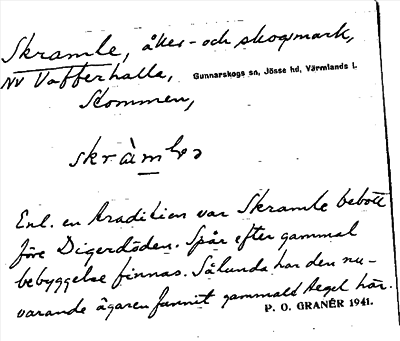 Skramle, åker- och skogsmark,
NV Vafferhalla, Gunnarskogs sn, Jösse hd, Värmlands l.
Stommen,
skràmle
Enl. en tradition var Skramle bebott
före Digerdöden. Spår efter gammal
bebyggelse finnas. Sålunda har den nu-
varande ägaren funnit gammalt tegel här.
P. O. GRANÉR 1941.